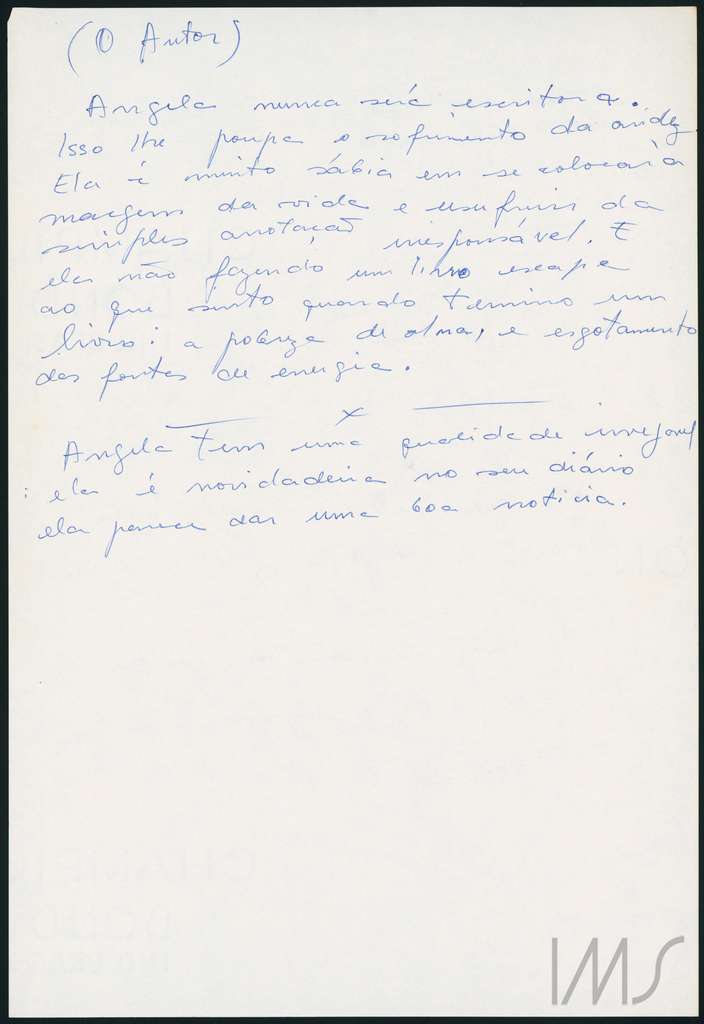 (O Autor)
Angela nunca será escritora.
Isso lhe poupa o sofrimento da aridez.
Ela é muito sábia em se colocar à
margem da vida e usufruir da
simples anotação irresponsável. E
ela não fazendo um livro escapa
ao que sinto quando termino um
livro: a pobreza de alma, e esgotamento
das fontes de energia.
x
Angela tem uma qualidade invejável
: ela é novidadeira no seu diário
ela parece dar uma boa notícia.
IMS